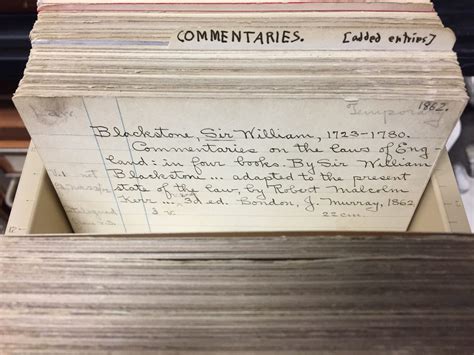 COMMENTARIES. [added entries]
Temporary
1862.
Blackstone, Sir William, 1723-1780.
Commentaries on the laws of Eng-
land: in four books. By Sir William
Blackstone ... adapted to the present
state of the law, by Robert Malcolm
Kerr ... 3d ed. London, J. Murray, 1862
22cm.